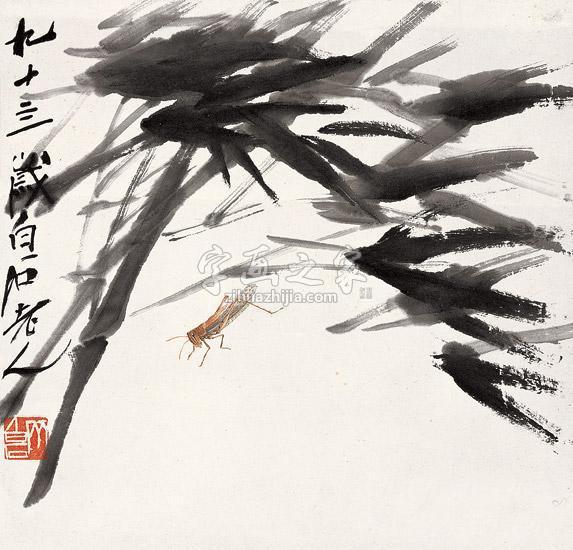 九十三歲白石老人
字画之家
zihuazhijia.com